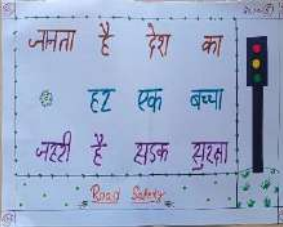 जानता है देश का
हर एक बच्चा
जरुरी है सडक सुरक्षा
Road Safety